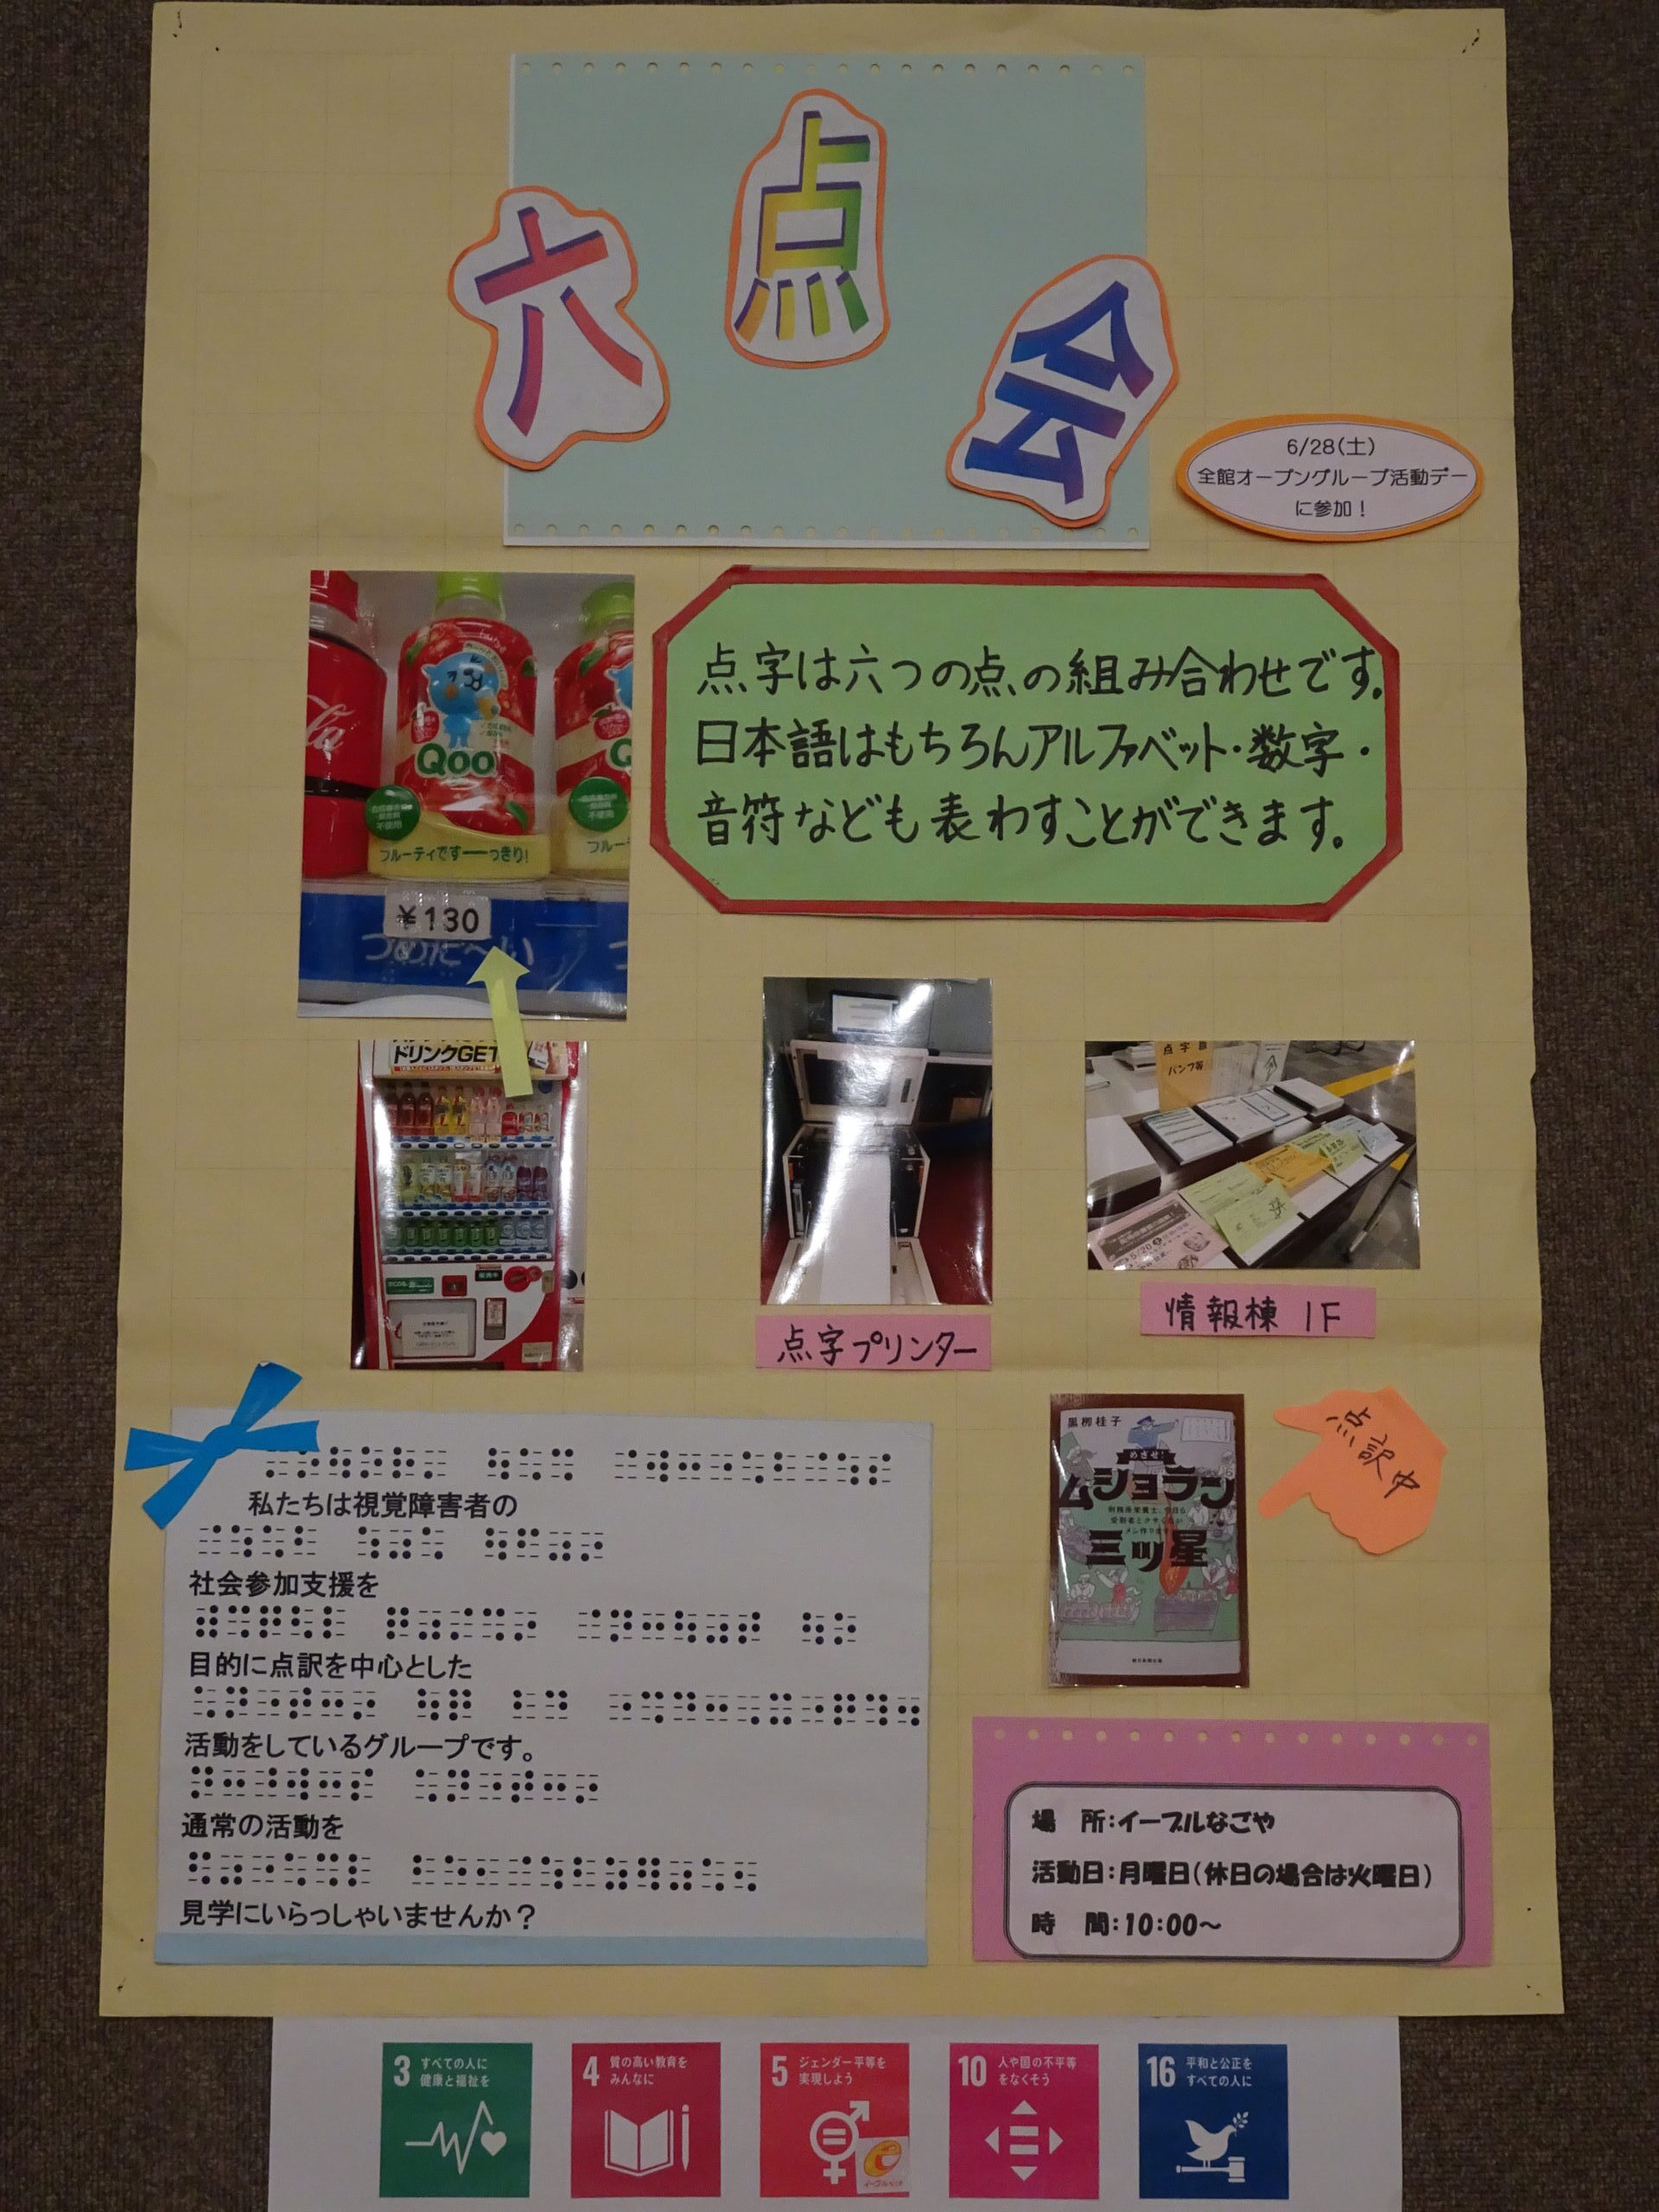 六点会
6/28(土)
全館オープングループ活動デー
に参加！
点字は六つの点の組み合わせです。
日本語はもちろんアルファベット・数字・
音符なども表わすことができます。
Qoo
不使用
フルーティですーーっきり!
¥130
つめた〜い
ドリンクGET
点字プリンター
パンフ等
情報棟 1F
黒柳桂子
めざせ!
ムショラン
三ツ星
点訳中
私たちは視覚障害者の
社会参加支援を
目的に点訳を中心とした
活動をしているグループです。
通常の活動を
見学にいらっしゃいませんか？
場　所：イーブルなごや
活動日：月曜日（休日の場合は火曜日）
時　間：10：00～
3 すべての人に
健康と福祉を
4 質の高い教育を
みんなに
5 ジェンダー平等を
実現しよう
10 人や国の不平等
をなくそう
16 平和と公正を
すべての人に